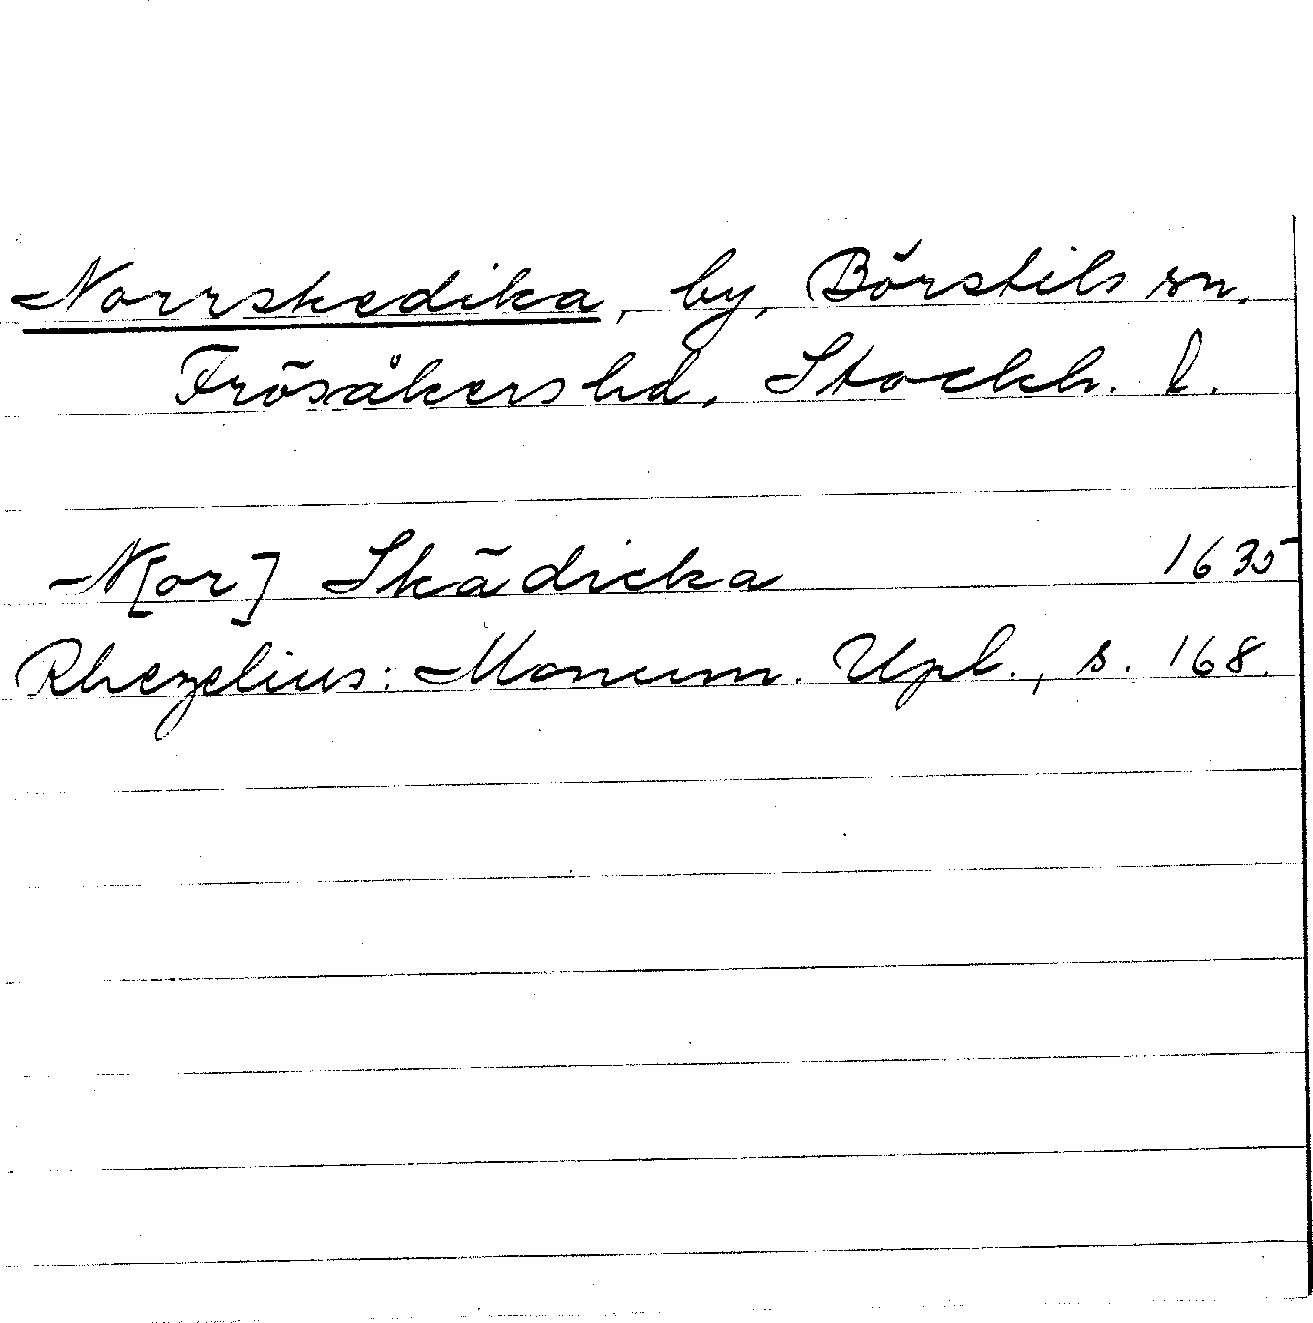 Norrskedika, by, Börstils sn.
Frösåkers hd, Stockh. l.
N[or] Skädicka 1635
Rhezelius: Monum. Upl., s. 168.